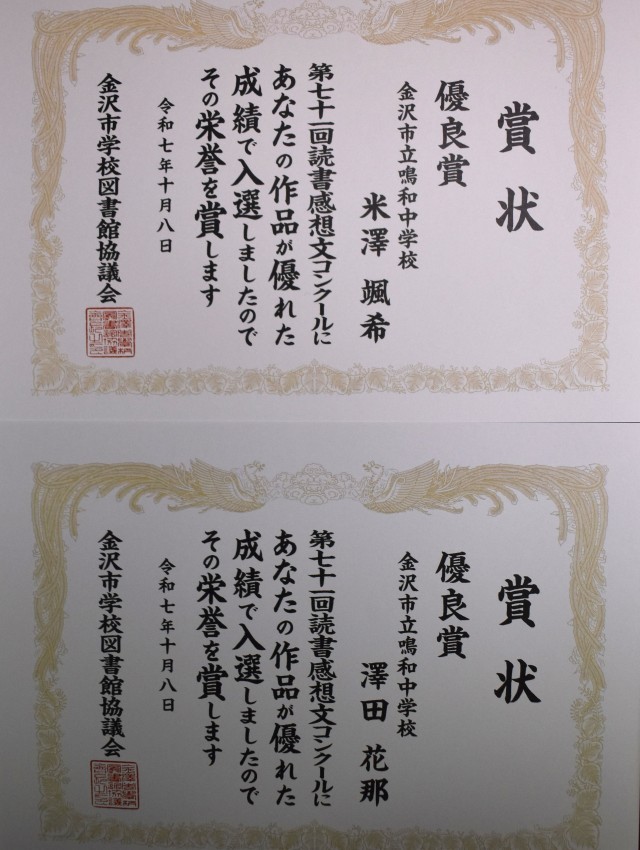 賞状
優良賞
金沢市立鳴和中学校
米澤 颯希
第七十一回読書感想文コンクールに
あなたの作品が優れた
成績で入選しましたので
その栄誉を賞します
令和七年十月八日
金沢市学校図書館協議会
賞状
優良賞
金沢市立鳴和中学校
澤田 花那
第七十一回読書感想文コンクールに
あなたの作品が優れた
成績で入選しましたので
その栄誉を賞します
令和七年十月八日
金沢市学校図書館協議会